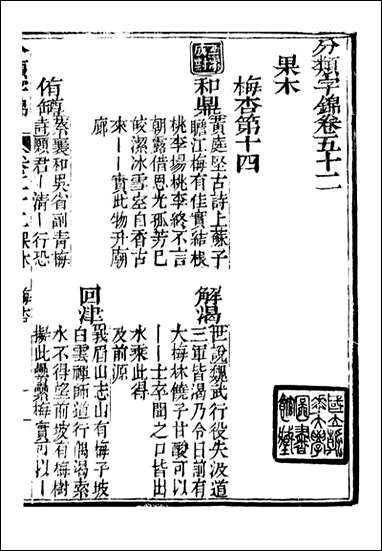 分類字錦卷五十二
果木
梅杏第十四
和鼎
黃庭堅古詩上蘇子
瞻江梅有佳實結根
桃李場桃李終不言
朝露借恩光孤芳忌
皎潔冰雪空自香古
來一一實此物升廟
廊
解渴
世說魏武行役失汲道
三軍皆渴乃令曰前有
大梅林饒子甘酸可以
一一士卒聞之口皆出
水乘此得
及前源
侑尊
蔡襄和吳省副青梅
詩願君一清一行恐
回津
峩眉山志山有梅子坡
白雲禪師道行偶渴索
水不得望前坡有梅樹
梅實可以一